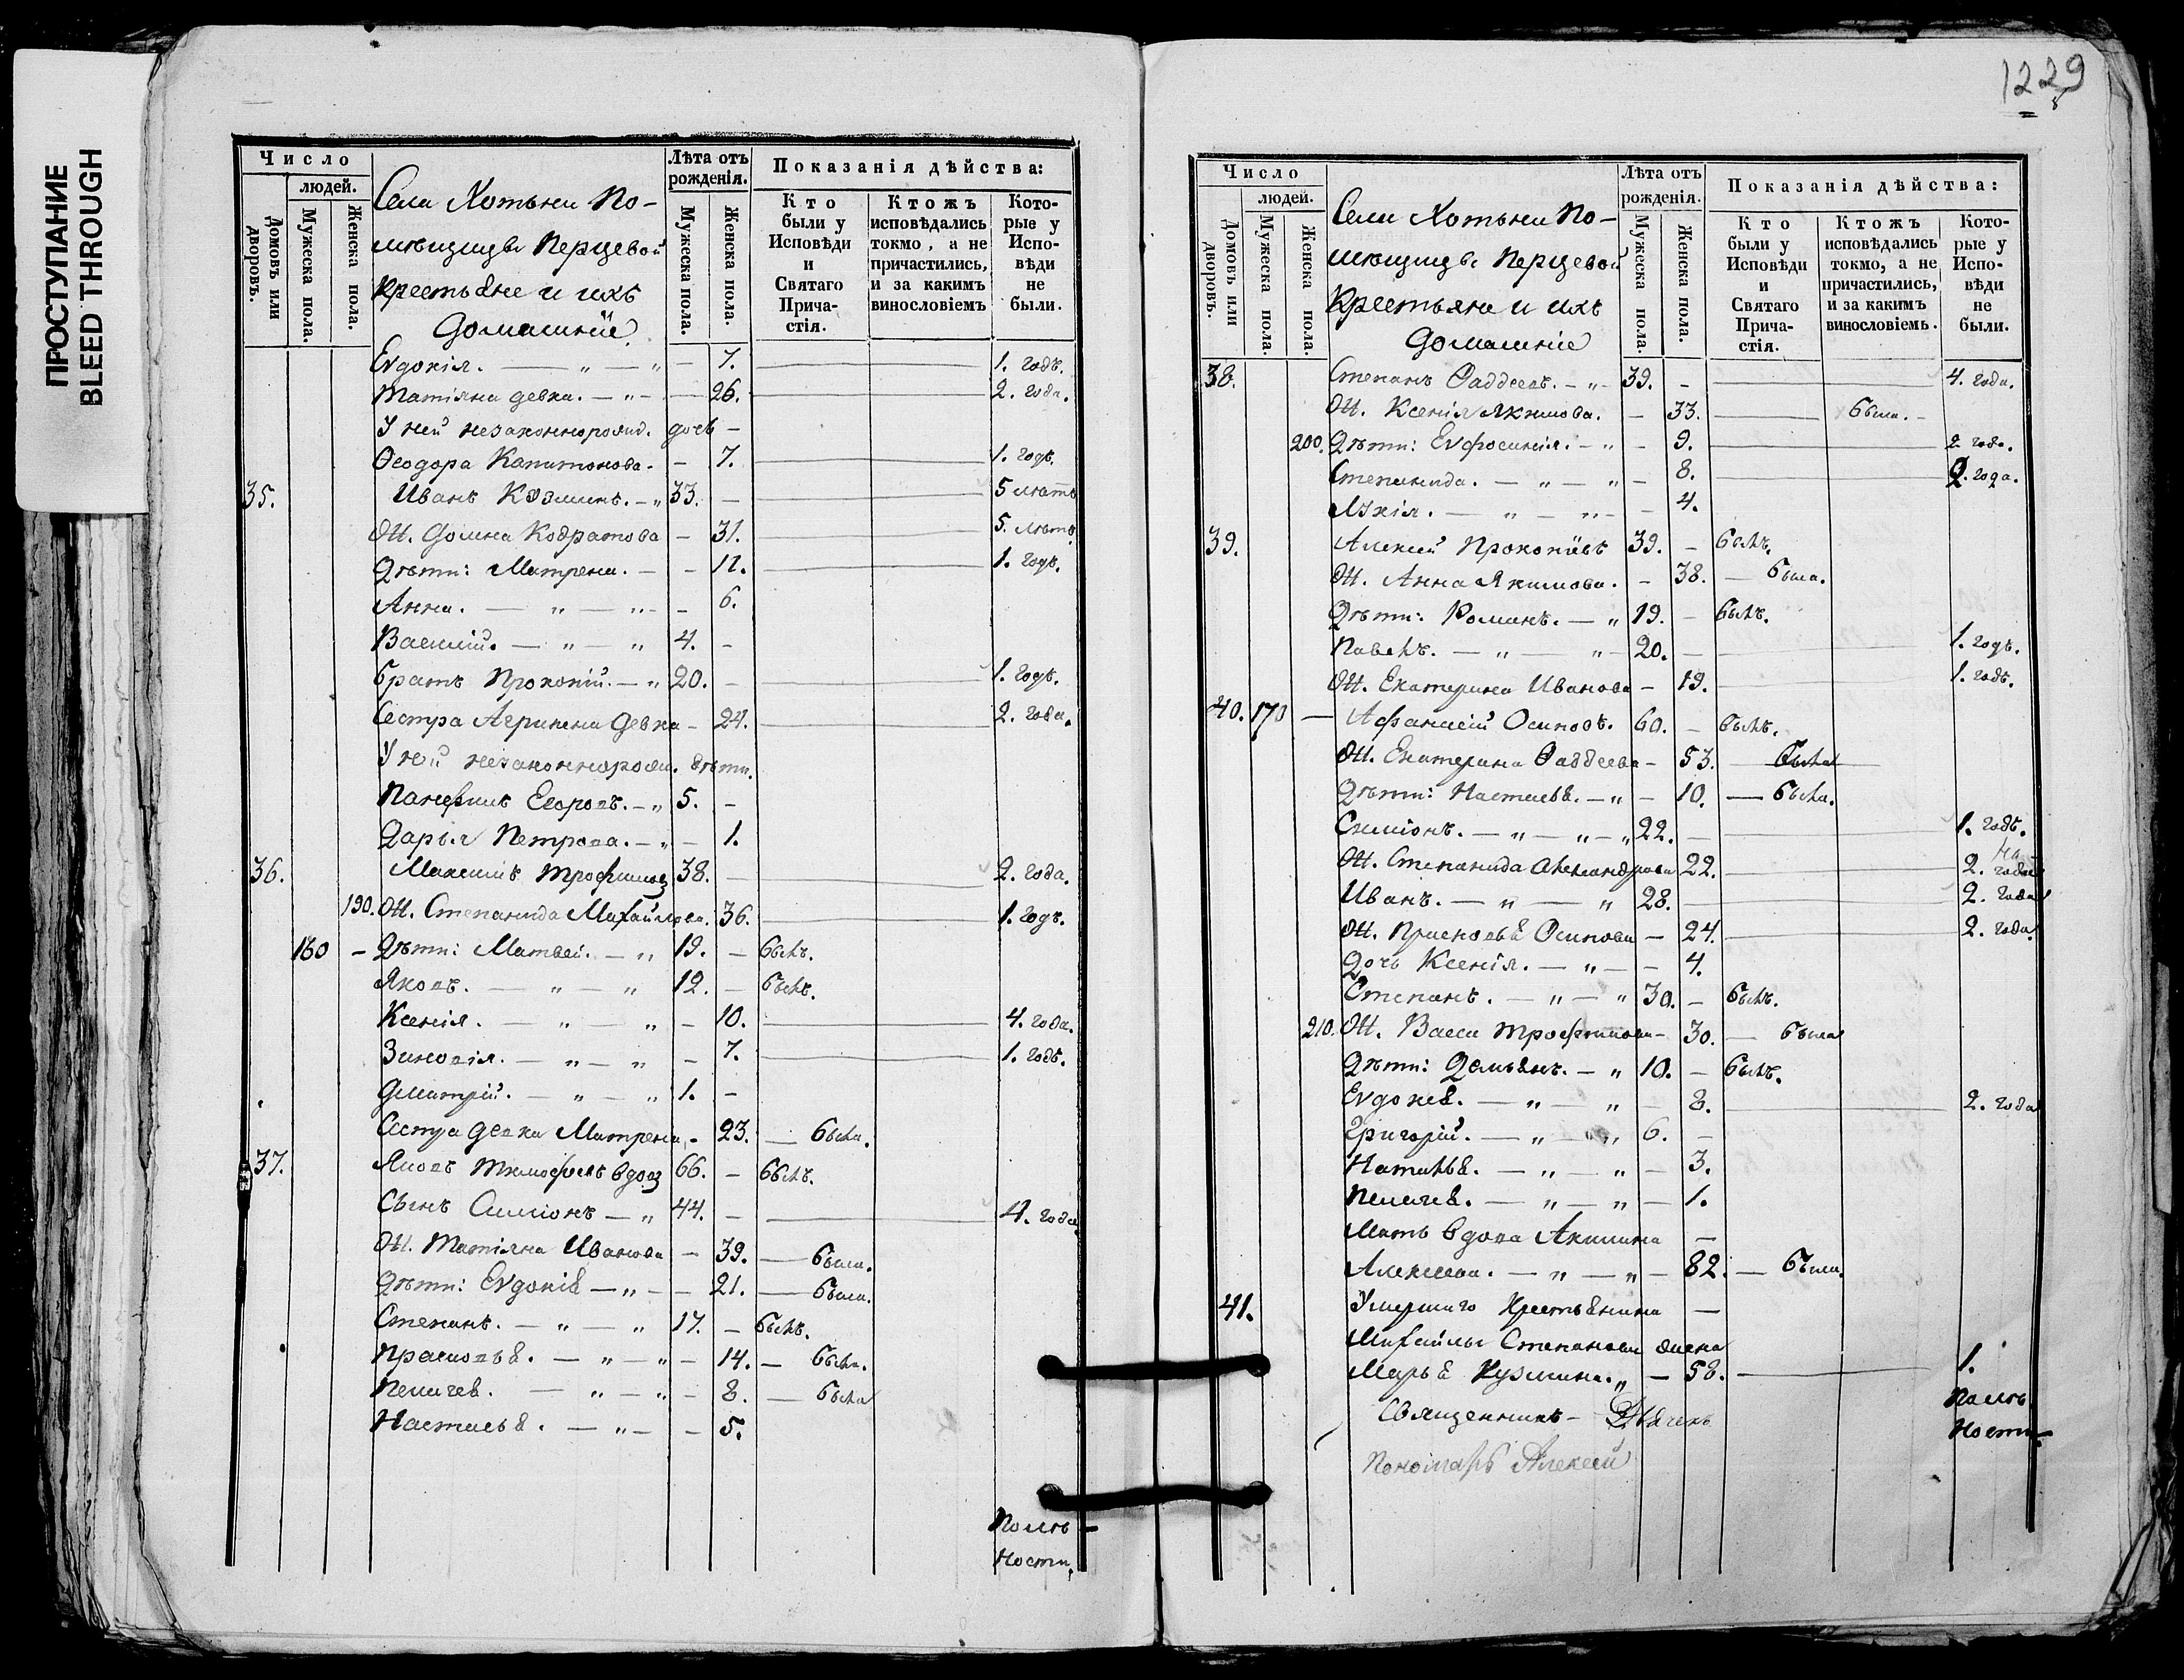 ПРОСТУПАНИЕ
BLEED THROUGH
1229
Число
людей.
Домовъ или дворовъ.
Мужеска пола.
Женска пола.
Села Хотьни По-
мѣщицы Перцевой
Крестьяне и ихъ
домашніе
Лѣта отъ рожденія.
Мужеска пола.
Женска пола.
Показанія дѣйства:
Кто были у Исповѣди и Святаго Прича-стія.
Ктожъ исповѣдались токмо, а не причастились, и за какимъ винословіемъ
Кото-рые у Испо-вѣди не были.
Евдокія. — „ — „ — 7. 1. годъ.
Татіяна девка. — „ — 26. 2. года.
У ней незаконнорожд. дочь —
Ѳеодора Капитонова. — 7. 1. годъ.
35. Иванъ Козминъ. — „ 33. — 5 лѣтъ
Ж. Домна Кодратова — 31. 5. лѣтъ
Дѣти: Матрена. — — 11. 1. годъ.
Анна. — „ — „ — 6.
Василій. — „ — „ 4. —
Братъ Прокопій. — „ 20. — 1. годъ.
Сестра Агрипена девка — 24. 2. года.
У ней незаконнорожд. дѣти.
Панфилъ Егоровъ. — „ 5. —
Дарья Петрова. — „ — 1.
36. Максимъ Трофимовъ 38. — 2. года.
190. Ж. Степанида Михайлова. 36. 1. годъ.
160 — Дѣти: Матвей. — „ 19. — былъ.
Яковъ. — „ — „ 12. — былъ.
Ксенія. — „ — „ — 10. 4. года.
Зиновія. — „ — „ — 7. 1. годъ.
Дмитрій. — „ — „ 1. —
Сестра девка Матрена — 23. — была.
37. Яковъ Тимофеевъ вдовъ 66. — былъ.
Сынъ Симіонъ — „ 44. — 4. года
Ж. Татіяна Иванова — 39. — была.
Дѣти: Евдокія — „ — — 21. — была.
Степанъ. — „ — „ 17. — былъ.
Прасковья. — „ — „ — 14. — была.
Пелагея. — „ — „ — 8. — была
Настасья. — „ — — 5.
Полѣ-
ности.
Число
людей.
Домовъ или дворовъ.
Мужеска пола.
Женска пола.
Села Хотьни По-
мѣщицы Перцевой
Крестьяне и ихъ
домашніе
Лѣта отъ рожденія.
Мужеска пола.
Женска пола.
Показанія дѣйства:
Кто были у Исповѣди и Святаго Прича-стія.
Ктожъ исповѣдались токмо, а не причастились, и за какимъ винословіемъ.
Кото-рые у Испо-вѣди не были.
38. Степанъ Ѳаддеевъ. — „ — 39. — 4. года.
Ж. Ксенія Якимова. — 33. была. —
200. Дѣти: Евфросинія. — „ — 9. 2 года.
Степанида. — „ — „ — 8. 2. года.
Лукія. — „ — „ — — 4.
39. Алексей Прокопіевъ 39. — былъ.
Ж. Анна Якимова. — 38. — была.
Дѣти: Романъ. — „ 19. — былъ.
Павелъ. — „ — „ — 20. — 1. годъ.
Ж. Екатерина Иванова — 19. 1. годъ.
40. 170 — Афанасій Осиповъ. 60. — былъ.
Ж. Екатерина Ѳаддеева — 53. — была
Дѣти: Настасья. — „ — 10. — была.
Симіонъ. — „ — „ — „ 22. — 1. годъ.
Ж. Степанида Александрова 22. 2. года
Иванъ. — „ — „ 28. — 2. года
Ж. Прасковья Осипова — 24. 2. года
Дочь Ксенія. — „ — — 4.
Степанъ. — „ — „ 30. — былъ.
210. Ж. Васса Трофимова — 30. — была
Дѣти: Демьянъ. — „ 10. — былъ.
Евдокея. — „ — „ — 8. 2. года
Григорій. — „ — „ 6. —
Наталья. — „ — „ — 3.
Пелагея. — „ — „ — 1.
Мать вдова Акилина —
Алексеева. — „ — „ — 82. — была.
41. Умершаго Крестьянина —
Михайлы Степанова жена
Марья Кузмина. „ — 58. — 1.
Полѣ
Ности
Священникъ —
Пономарь Алексей